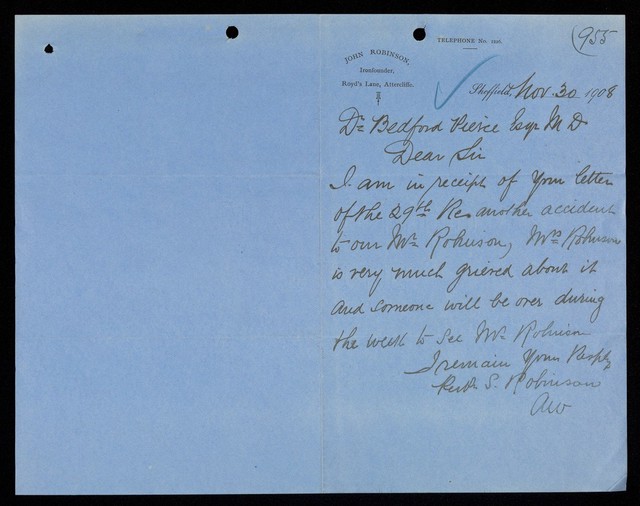 955
TELEPHONE No.
JOHN ROBINSON,
Ironfounder,
Royd's Lane, Attercliffe.
Sheffield, Nov. 30 1908
Dr Bedford Pierce Esqr M D
Dear Sir
I am in receipt of your letter
of the 29th Re another accident
to our Mr Robinson, Mrs Robinson
is very much grieved about it
and someone will be over during
the week to see Mr Robinson
I remain Yours Respty
S. Robinson